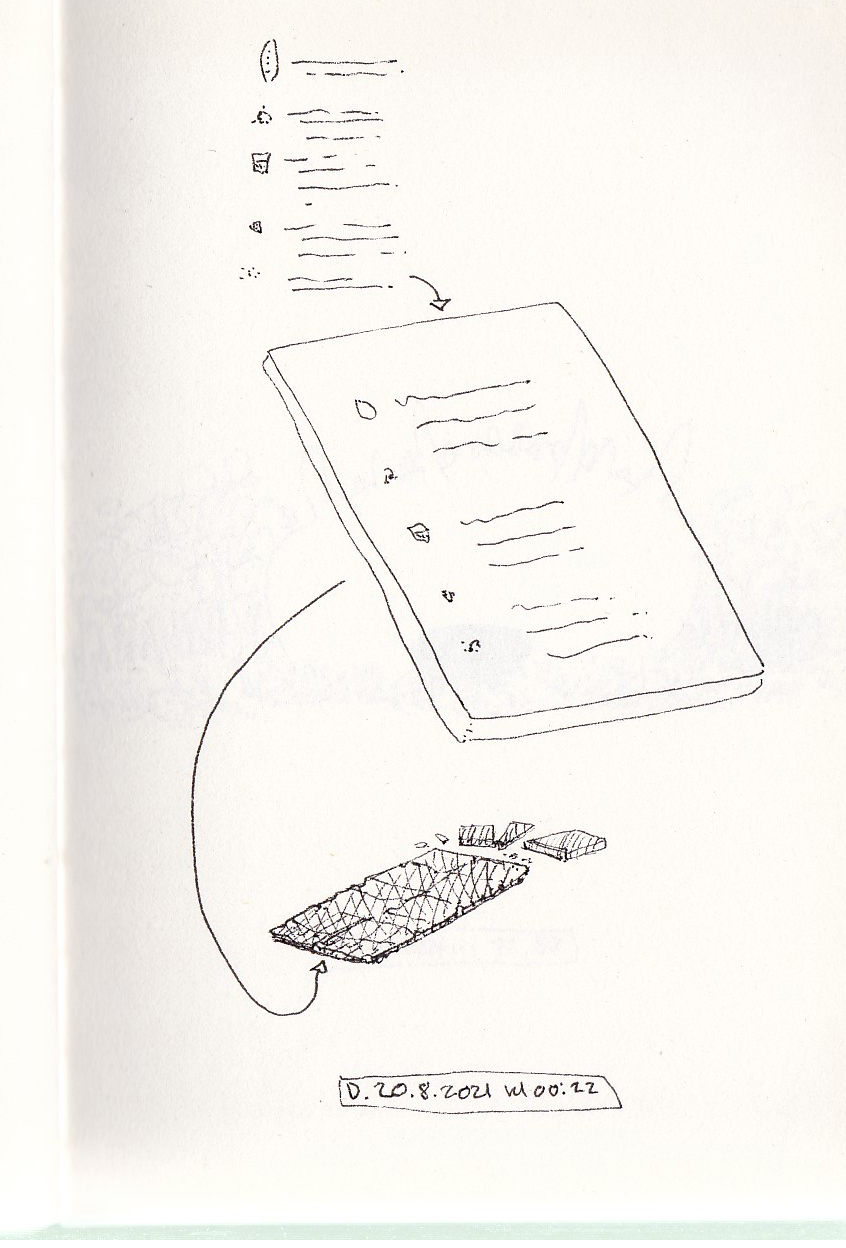 D. 20.8.2021 kl 00:22